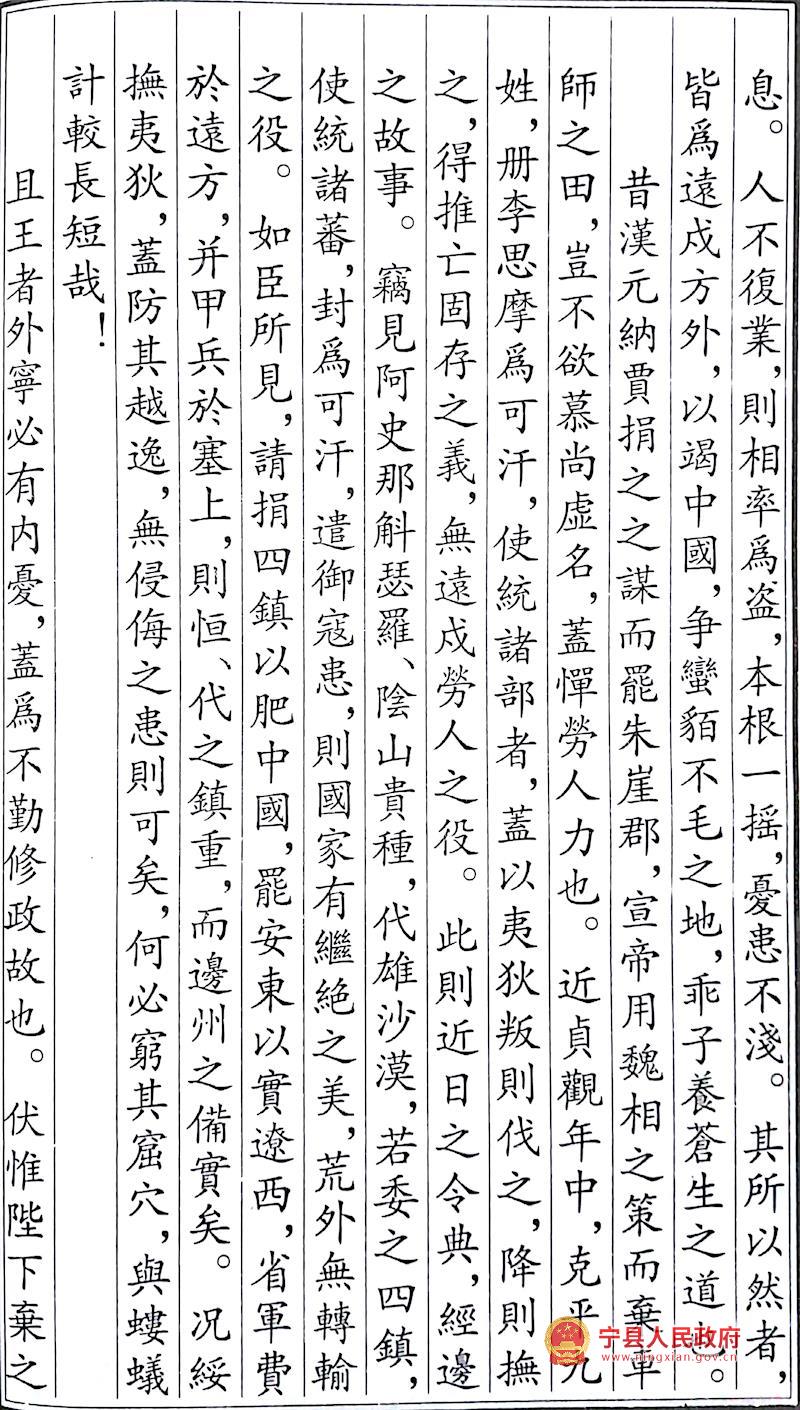 息。人不復業，則相率爲盗，本根一摇，憂患不淺。其所以然者，
皆爲遠戍方外，以竭中國，争蠻貊不毛之地，乖子養蒼生之道也。
昔漢元納賈捐之之謀而罷朱崖郡，宣帝用魏相之策而棄車
師之田，豈不欲慕尚虚名，蓋憚勞人力也。近貞觀年中，克平九
姓，册李思摩爲可汗，使統諸部者，蓋以夷狄叛則伐之，降則撫
之，得推亡固存之義，無遠戍勞人之役。此則近日之令典，經邊
之故事。竊見阿史那斛瑟羅、陰山貴種，代雄沙漠，若委之四鎮，
使統諸蕃，封爲可汗，遣御寇患，則國家有繼絶之美，荒外無轉輸
之役。如臣所見，請捐四鎮以肥中國，罷安東以實遼西，省軍費
於遠方，并甲兵於塞上，則恒、代之鎮重，而邊州之備實矣。况綏
撫夷狄，蓋防其越逸，無侵侮之患則可矣，何必窮其窟穴，與螻蟻
計較長短哉！
且王者外寧必有内憂，蓋爲不勤修政故也。伏惟陛下棄之
宁县人民政府
www.ningxian.gov.cn